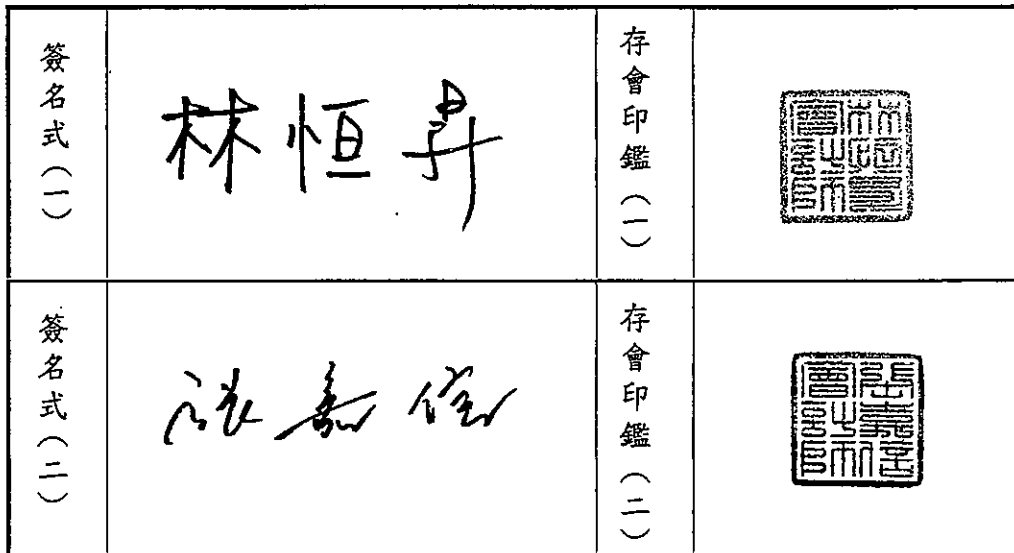 簽名式(一)
林恒昇
存會印鑑(一)
林恒昇會計師
簽名式(二)
張嘉信
存會印鑑(二)
張嘉信會計師